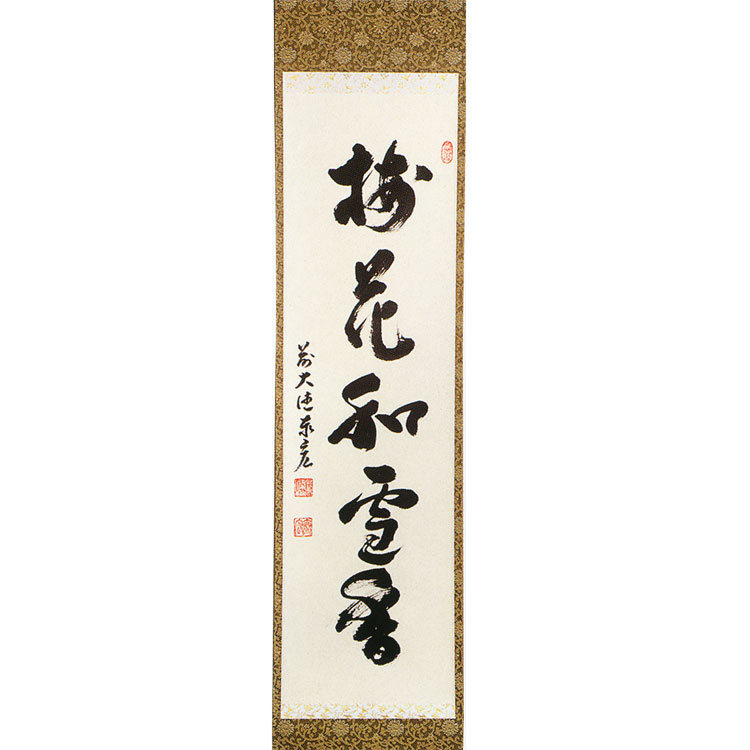 梅花和雪香
前大徳泰宏